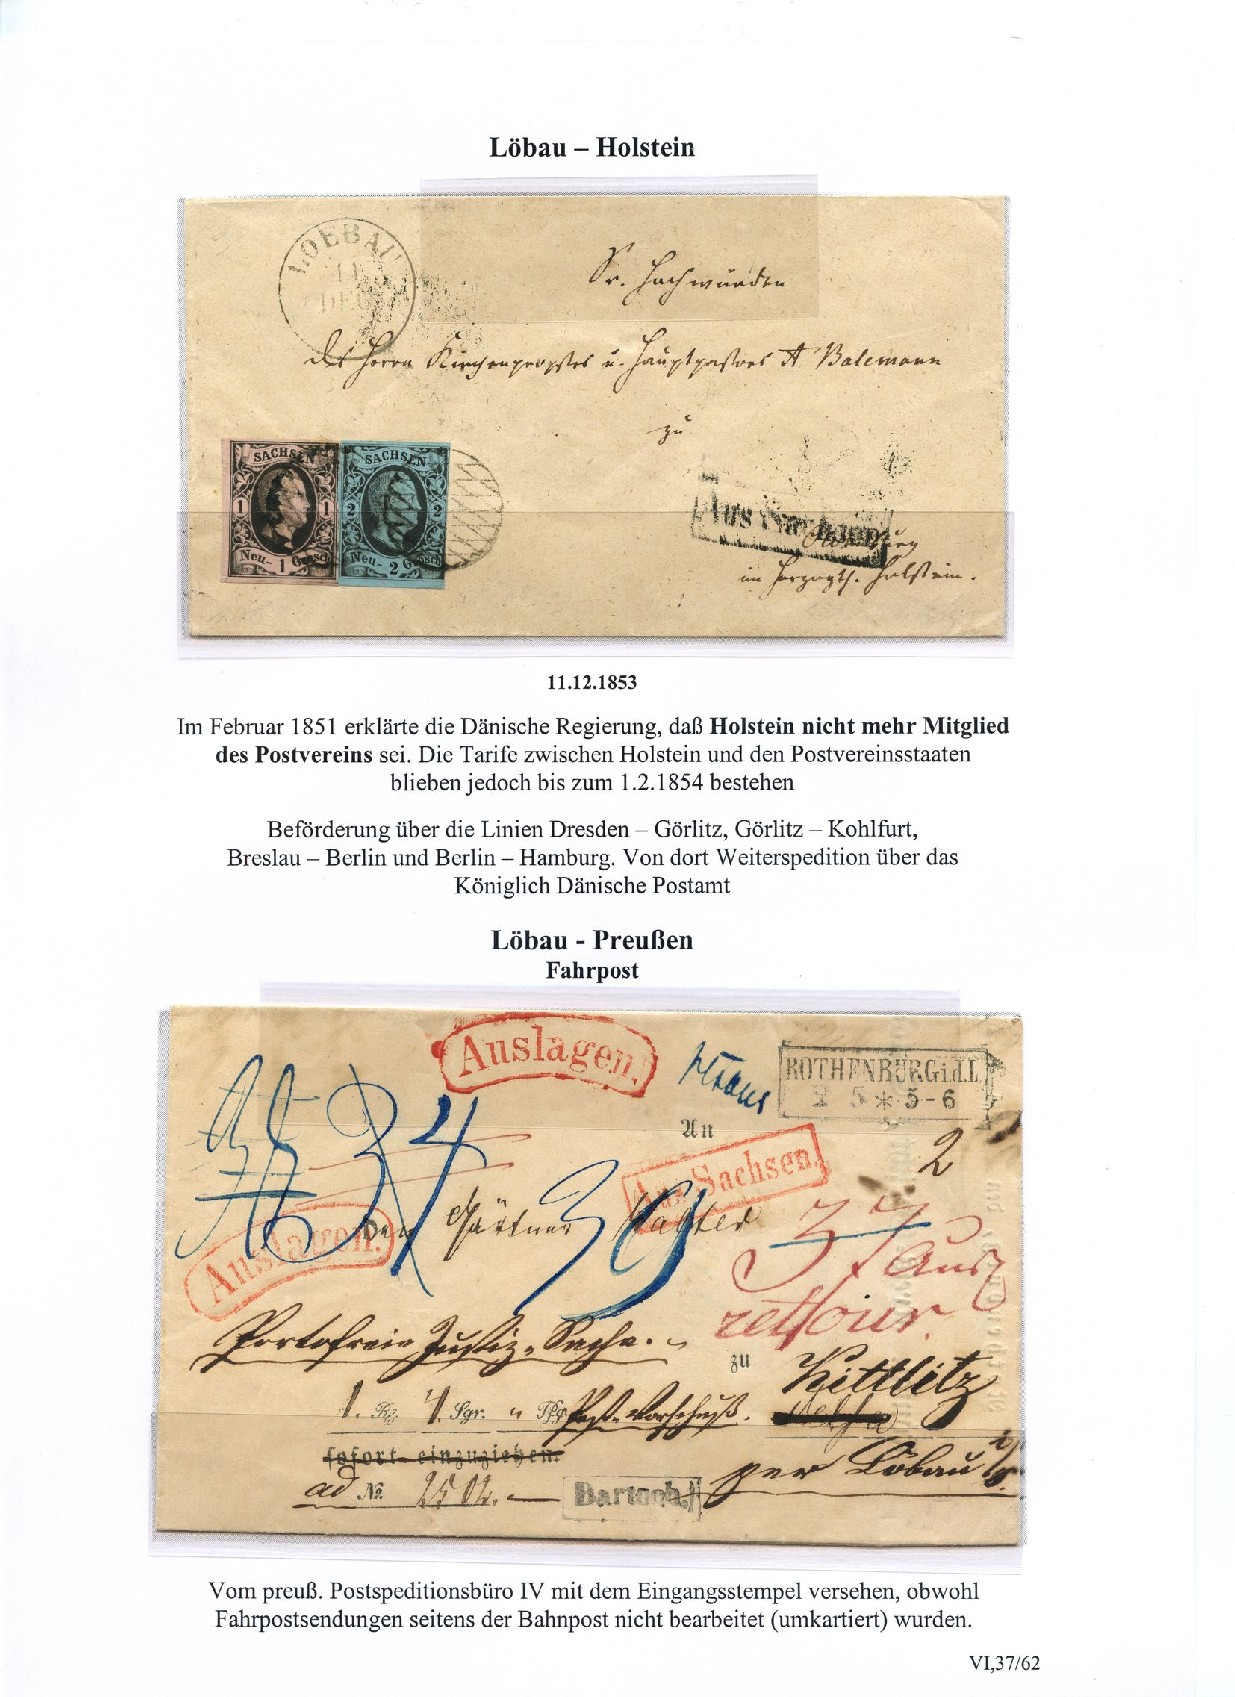 Löbau – Holstein
LOEBAU
11
DEC
Sr. Hochwürden
des Herrn Kirchenpropstes u. Hauptpastors A Balemann
zu
SACHSEN
1 1
Neu- 1 Grosch
SACHSEN
2 2
Neu- 2 Grosch
Aus Sachsen
im Herzogth. Holstein.
11.12.1853
Im Februar 1851 erklärte die Dänische Regierung, daß Holstein nicht mehr Mitglied
des Postvereins sei. Die Tarife zwischen Holstein und den Postvereinsstaaten
blieben jedoch bis zum 1.2.1854 bestehen
Beförderung über die Linien Dresden – Görlitz, Görlitz – Kohlfurt,
Breslau – Berlin und Berlin – Hamburg. Von dort Weiterspedition über das
Königlich Dänische Postamt
Löbau - Preußen
Fahrpost
Auslagen.
ROTHENBURG i.d.L
2 5 * 5-6
An
2
Aus Sachsen.
34
39
Den Gärtner
Auslagen.
37
retour.
Portofreie Justiz-Sache.
zu Kittlitz
1. Rt. 4. Sgr. " Pfg Post-Vorschuß.
sofort einzuziehen.
per Löbau i/S.
ad No. 2502.
Bartsch.
Vom preuß. Postspeditionsbüro IV mit dem Eingangsstempel versehen, obwohl
Fahrpostsendungen seitens der Bahnpost nicht bearbeitet (umkartiert) wurden.
VI,37/62